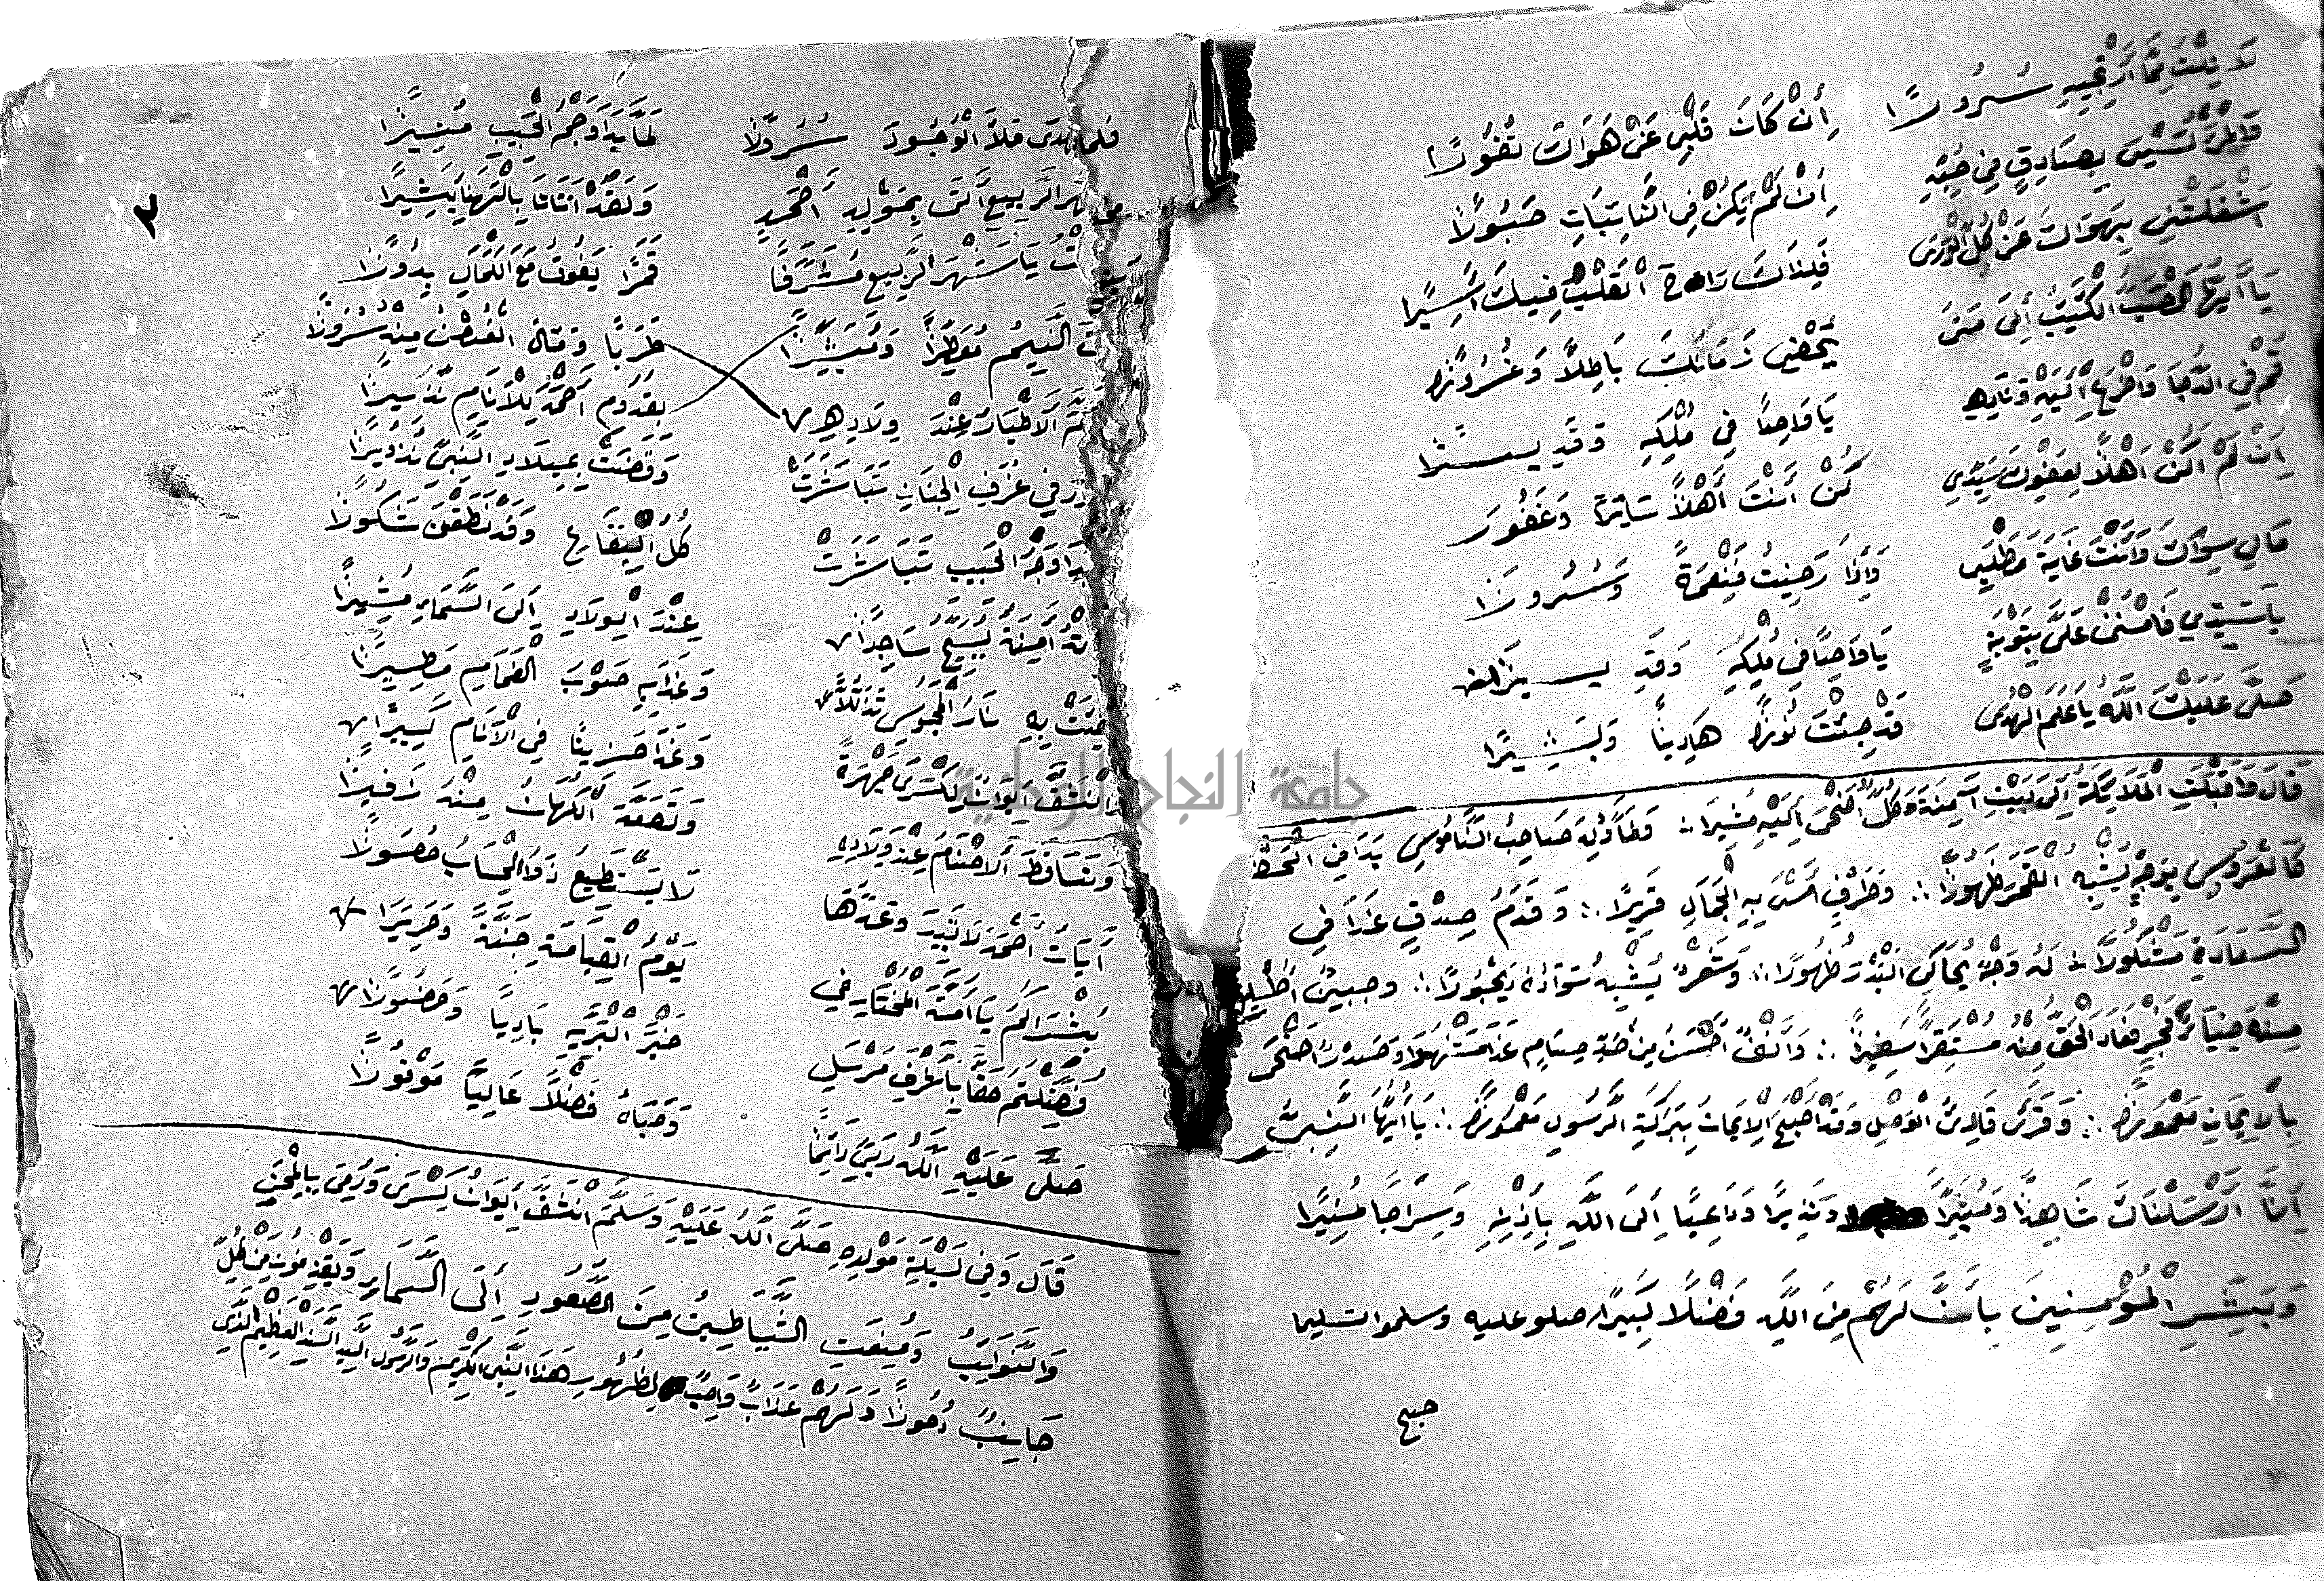 لَا نِلْتُ مِمَّا أَرْتَجِيهِ سُرُورًا إِنْ كَانَ قَلْبِي عَنْ هَوَاكَ نَفُورًا
فَالمرُّ لَيْسَ بِصَادِقٍ فِي حُبِّهِ إِنْ لَمْ يَكُنْ فِي النَّائِبَاتِ صَبُورًا
أَشْغَلْتَنِي بِهَوَاكَ عَنْ كُلِّ الْوَرَى فَلِذَاكَ رَاحَ الْقَلْبُ فِيكَ أَسِيرًا
يَا أَيُّهَا الصَّبُّ الْكَئِيبُ إِلَى مَتَى يَمْضِي زَمَانُكَ بَاطِلًا وَغُرُورًا
قُمْ فِي الدُّجَا وَاضْرَعْ إِلَيْهِ وَنَادِهِ يَا وَاحِدًا فِي مُلْكِهِ وَقَدِيرًا
إِنْ لَمْ أَكُنْ أَهْلًا لِعَفْوِكَ سَيِّدِي كُنْ أَنْتَ أَهْلًا سَاتِرًا وَغَفُورَ
مَالِي سِوَاكَ وَأَنْتَ غَايَةُ مَطْلَبِي وَإِذَا رَضِيتَ فَنِعْمَةً وَسُرُورًا
يَا سَيِّدِي فَامْنُنْ عَلَيَّ بِتَوْبَةٍ يَا وَاحِدًا فِي مُلْكِهِ وَقَدِيرًا
صَلَّى عَلَيْكَ اللَّهُ يَا عَلَمَ الْهُدَى قَدْ جِئْتَ نُورًا هَادِيًا وَبَشِيرًا
قَالَ وَأَقْبَلَتِ الْمَلَائِكَةُ إِلَى بَيْتِ آمِنَةَ وَكُلٌّ أَضْحَى إِلَيْهِ مُشِيرًا ∴ صَاحِبُ النَّامُوسِ بَدَا فِي
كَالْعَرُوسِ بِوَجْهٍ يُشْبِهُ الْقَمَرَ ظُهُورًا ∴ وَطَرْفٍ أَمْسَى بِهِ الْجَمَالُ قَرِيرًا ∴ وَقَدَمُ صِدْقٍ غَدَا فِي
السَّعَادَةِ مَشْكُورًا ∴ لَهُ وَجْهٌ يُحَاكِي الْبَدْرَ ظُهُورًا ∴ وَشَعْرٌ يُشْبِهُ سَوَادُهُ دَيْجُورًا ∴ وجبين
مِنْهُ ضِيَاءُ فَجْرٍ فَعَادَ الْحَقُّ مِنْهُ مُسْتَقِرًّا سَفِيرًا ∴ وَأَنْفٌ أَحْسَنُ مِنْ حَدِّ غَدَا مَشْهُورًا وَصَدْرٌ أَضْحَى
بِالْإِيمَانِ مَعْمُورًا ∴ وَقَرَى قَارِئُ الْوَصْلِ وَقَدْ أَصْبَحَ الْإِيمَانُ بِبَرَكَةِ الرَّسُولِ مَعْمُورًا ∴ يَا أَيُّهَا النَّبِيُّ
إِنَّا أَرْسَلْنَاكَ شَاهِدًا وَمُبَشِّرًا وَنَذِيرًا وَدَاعِيًا إِلَى اللَّهِ بِإِذْنِهِ وَسِرَاجًا مُنِيرًا
وَبَشِّرِ الْمُؤْمِنِينَ بِأَنَّ لَهُمْ مِنَ اللَّهِ فَضْلًا كَبِيرًا صلو عليه وسلموا تسليما
٣
مَلَأَ الْوُجُودَ سُرُورًا لَمَّا بَدَا وَجْهُ الْحَبِيبِ مُنِيرًا
الرَّبِيعُ أَتَى بِمَوْلِدِ أَحْمَدٍ وَلَقَدْ أَتَانَا بِالْهَنَا بَشِيرًا
يَا شَهْرَ الرَّبِيعِ مُشَرَّفًا قَمَرًا يَفُوقُ مَعَ الْكَمَالِ بُدُورًا
النَّسِيمُ مُعَطَّرًا وَمُبَشِّرًا طَرَبًا وَمَالَ الْغُصْنُ مِنْهُ سُرُورًا
الْأَطْيَارُ عِنْدَ وِلَادِهِ بِقُدُومِ أَحْمَدَ لِلْأَنَامِ نَذِيرًا
فِي غُرَفِ الْجِنَانِ تَبَاشَرَتْ وَقَضَتْ بِمِيلَادِ النَّبِيِّ نُذُورًا
وَجْهُ الْحَبِيبِ تَبَاشَرَتْ كُلُّ الْبِقَاعِ وَقَدْ نَطَقْنَ شَكُورًا
آمِنَةُ يُسَبِّحُ سَاجِدًا عِنْدَ الْوِلَادِ إِلَى السَّمَاءِ مُشِيرًا
بِهِ نَارُ الْمَجُوسِ تَذَلُّلًا وَغَدَا بِهِ صَوْبَ الْغَمَامِ مَطِيرًا
وَانْشَقَّ إِيوَانٌ لِكِسْرَى جَهْرَةً وَغَدَا حَزِينًا فِي الْأَنَامِ كَسِيرًا
وَتَسَاقَطَ الْأَصْنَامُ عِنْدَ وِلَادِهِ وَتَصَعَّدَ الْكُهَّانُ مِنْهُ زَفِيرًا
آيَاتُ أَحْمَدَ لَا تَبِيدُ وَعَدُّهَا لَا يَسْتَطِيعُ ذَوُو الْحِسَابِ حُصُورًا
بُشْرَاكُمُ يَا أُمَّةَ الْمُخْتَارِ فِي يَوْمِ الْقِيَامَةِ جَنَّةً وَحَرِيرًا
فُضِّلْتُمُ حَقًّا بِأَشْرَفِ مُرْسَلٍ خَيْرِ الْبَرِيَّةِ بَادِيًا وَحَضُورًا
صَلَّى عَلَيْهِ اللَّهُ رَبِّي دَائِمًا وَحَبَاهُ فَضْلًا عَالِيًا مَوْفُورًا
قَالَ وَفِي لَيْلَةِ مَوْلِدِهِ صَلَّى اللَّهُ عَلَيْهِ وَسَلَّمَ انْشَقَّ إِيوَانُ كِسْرَى وَرُمِيَ بِالْمِحَنِ
وَالنَّوَايِبُ وَمُنِعَتِ الشَّيَاطِينُ مِنَ الصُّعُودِ إِلَى السَّمَاءِ وَيُقْذَفُونَ مِنْ كُلِّ
جَانِبٍ دُحُورًا وَلَهُمْ عَذَابٌ وَاصِبٌ لِظُهُورِ هَذَا النَّبِيِّ الْكَرِيمِ وَالرَّسُولِ السَّيِّدِ السَّنَدِ الْعَظِيمِ الَّذِي
جامعة النجاح الوطنية